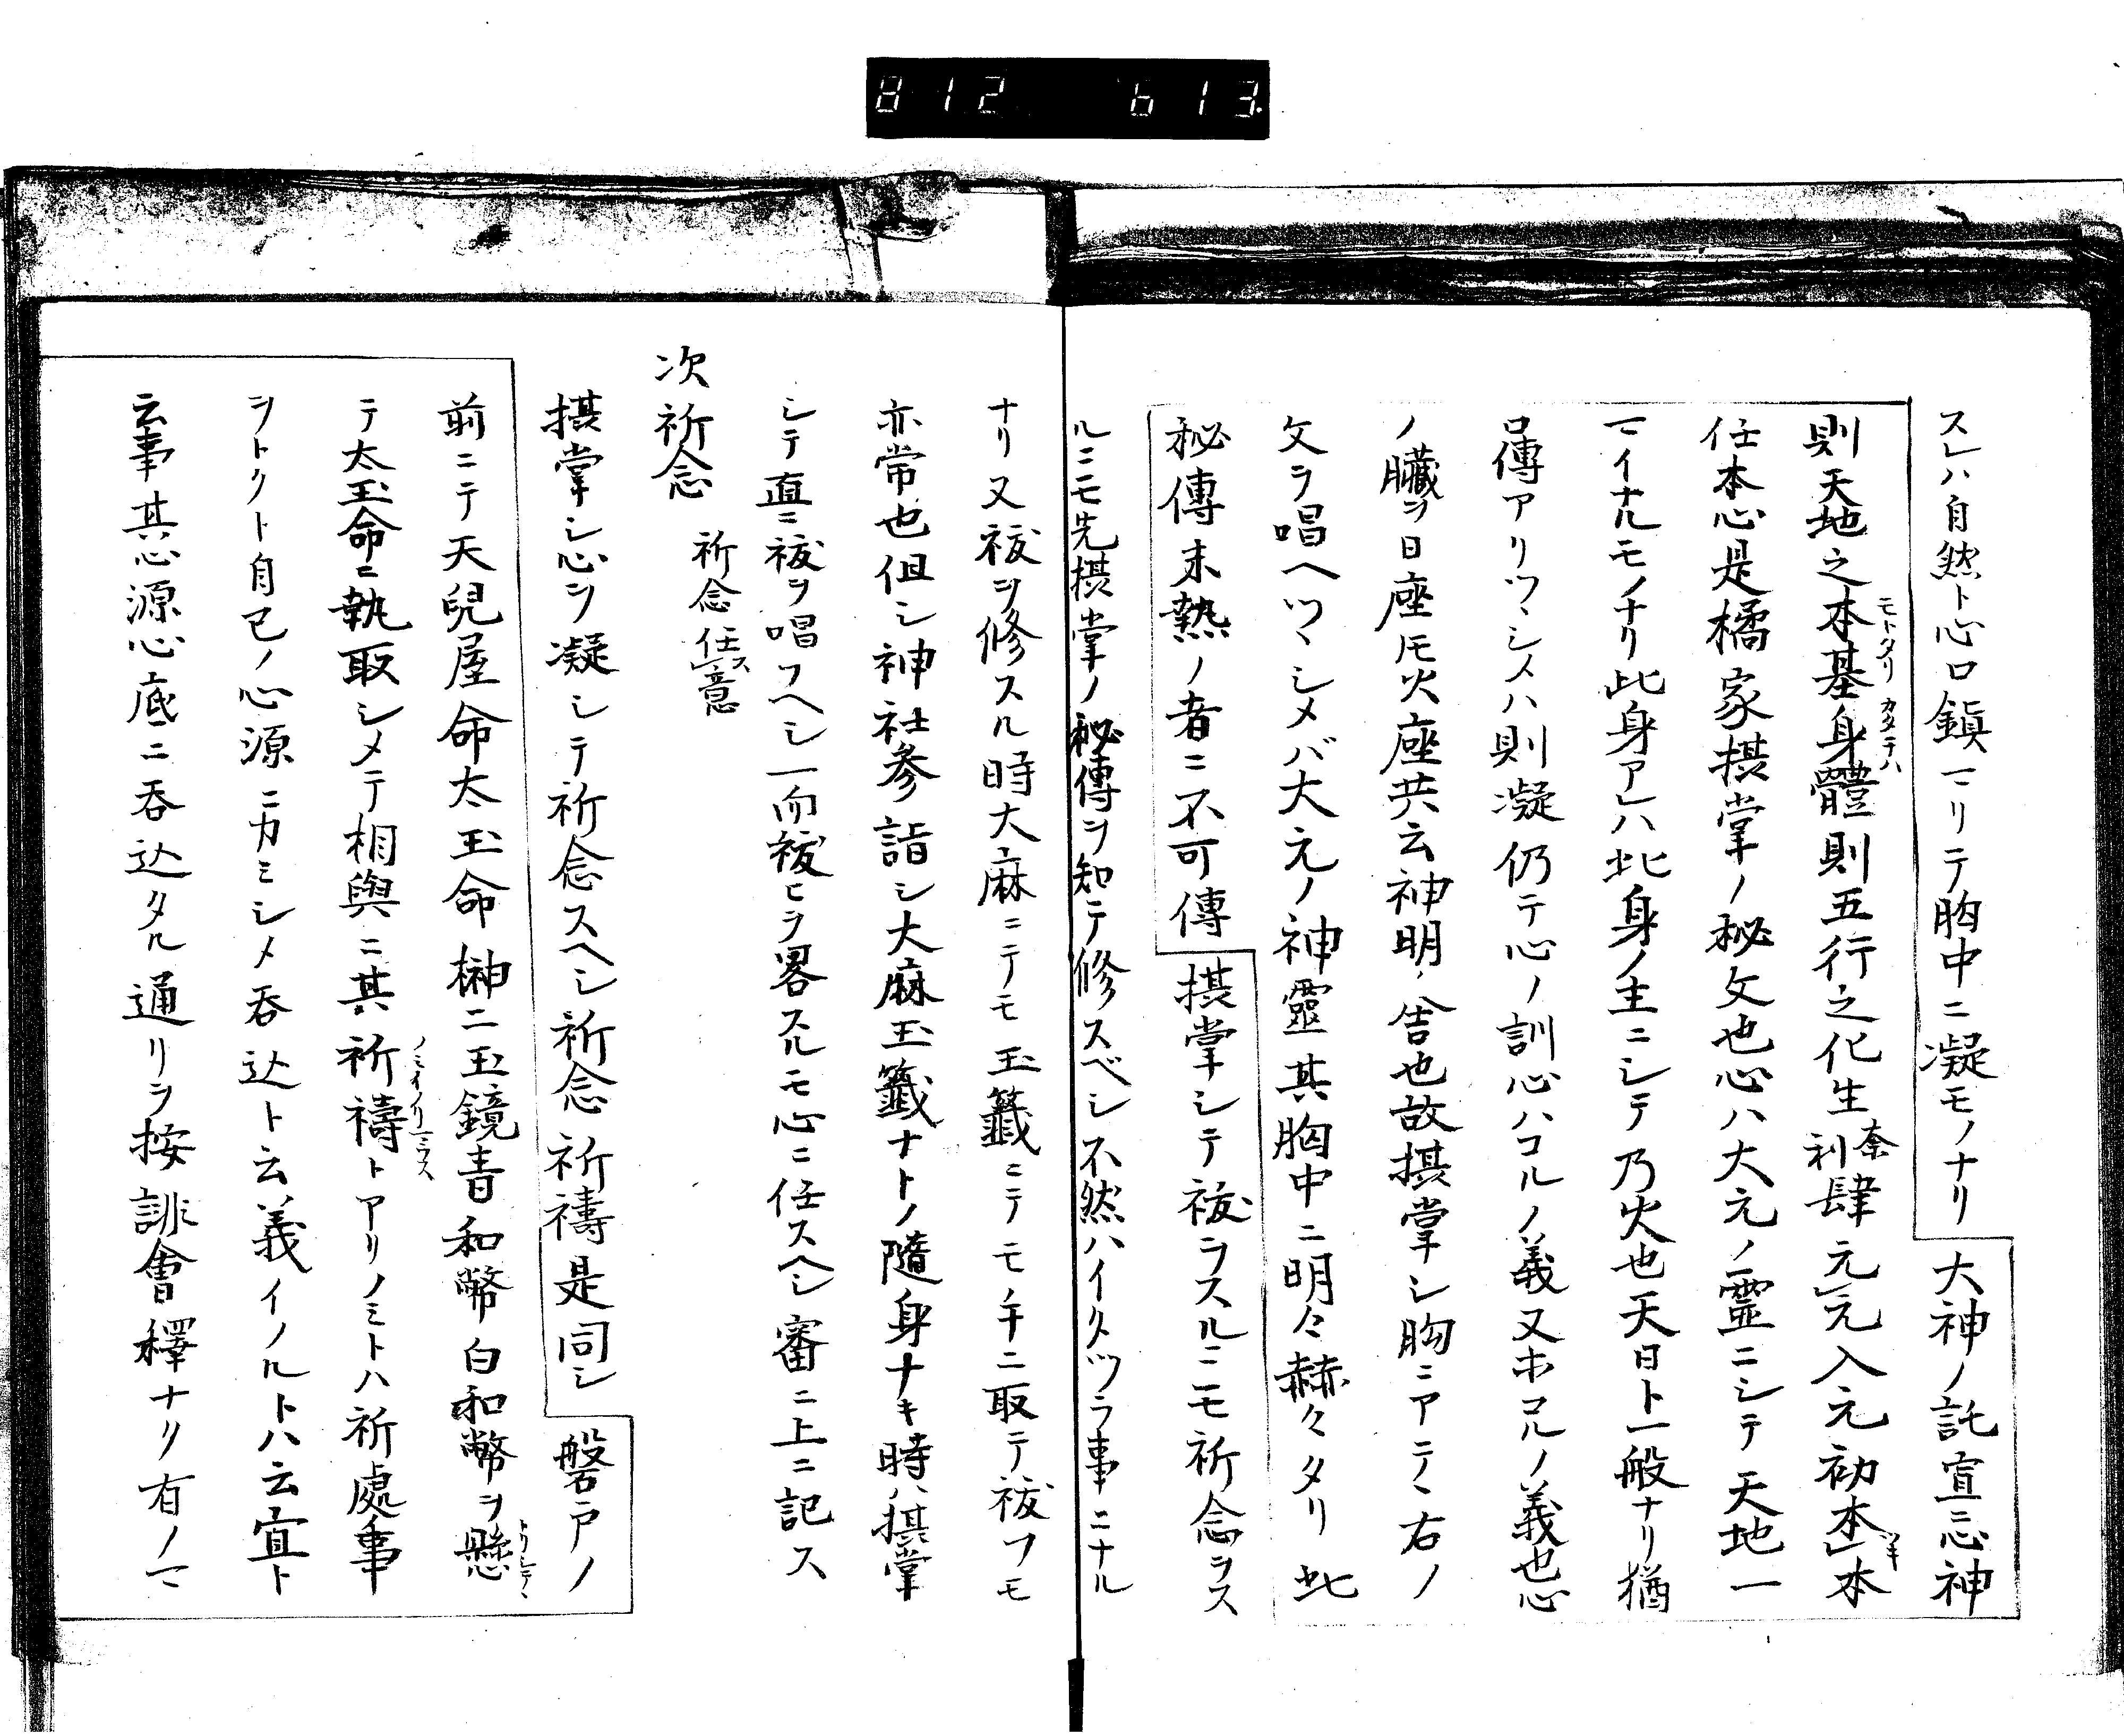 812 613
スレハ自然ト心ロ鎮マリテ胸中ニ凝モノナリ 大神ノ託宣ニ心神
則天地之本基身體則五行之化生奈利肆元レ元入元初本レ本
モトタリ カタチハ
任本心是橘家拱掌ノ秘文也心ハ大元ノ霊ニシテ天地一
マイナルモノナリ此身アレハ此身ノ主ニシテ乃火也天日ト一般ナリ猶
口傳アリツヽシメハ則凝仍テ心ノ訓心ハコルノ義又ホコルノ義也心
ノ臓ヲ日座氏火座共云神明ノ舎也故拱掌シ胸ニアテヽ右ノ
文ヲ唱ヘツヽシメバ大元ノ神靈其胸中ニ明々赫々タリ此
秘傳未熟ノ者ニ不可傳 拱掌シテ祓ヲスルニモ祈念ヲス
ルニモ先拱掌ノ秘傳ヲ知テ修スベシ不然ハイタヅラ事ニナル
ナリ又祓ヲ修スル時大麻ニテモ玉籤ニテモ手ニ取テ祓フモ
亦常也但シ神社參詣シ大麻玉籤ナトノ隨身ナキ時ハ拱掌
シテ直ニ祓ヲ唱フヘシ一而祓ヒヲ畧スルモ心ニ任スヘシ審ニ上ニ記ス
次祈念 祈念任意ス
拱掌シ心ヲ凝シテ祈念スヘシ祈念祈禱是同シ 磐戸ノ
前ニテ天兒屋命太玉命榊ニ玉鏡青和幣白和幣ヲ懸
トリシテヽ
テ太玉命ニ執取シメテ相與ニ其祈禱トアリノミトハ祈處事
ノミイノリニウス
ヲトクト自己ノ心源ニカミシメ呑込ト云義イノルトハ云宣ト
云事其心源心底ニ呑込タル通リヲ按誹會釋ナリ有ノマ